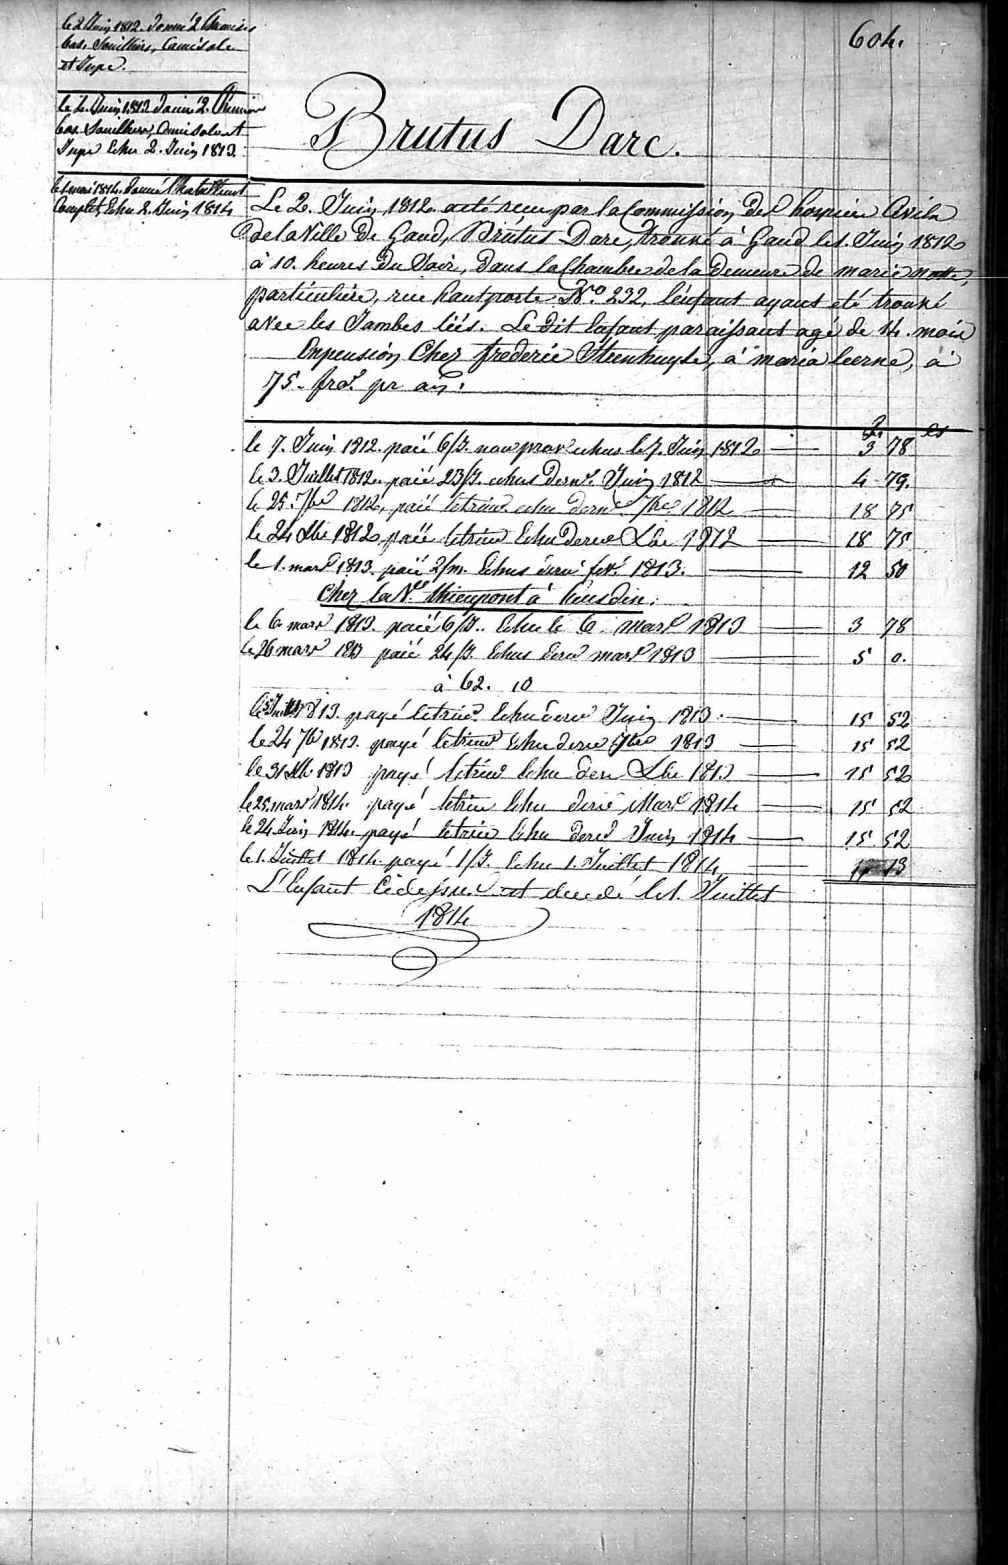 604.
le 2 Juin 1812. donné 2 Chemises
bas, Souilliers, Camisole
et Jupe.
le 2. Juin 1813 donné 2. Chemises
bas Souilliers, Camisole et
Jupe Echu 2. Juin 1813.
le 1 mai 1814. donné l'habillement
Complet, Echu 2. Juin 1814
Brutus Darc.
Le 2. Juin 1812. a eté recu par la Commission des hospices Civils
de la Ville de Gand, Brutus Darc, trouvé à Gand le 1. Juin 1812
à 10. heures du Soir, dans la Chambre de la Demeure de marie
particulière, rue hautporte No. 232, l'enfant ayant eté trouvé
avec les Jambes liés. Le dit Enfant paraissant agé de 14. mois
En pension Chez frederic Steenhuyse, à maria leerne, à
75. frs. pr an.
fr cs
le 7. Juin 1812. paié 6/J. echus le 7. Juin 1812 3 78
le 3. Juillet 1812. paié 23/J. echus dernr. Juin 1812 4 79.
le 25. 7bre 1812, paié le trime echu dernr 7bre 1812 18 75
le 24 Xbre 1812 paié le trime Echu dernr Xbre 1812 18 75
le 1. mars 1813. paié 2/m. Echus dernr fevr. 1813. 12 50
Chez la Ve. thienpont à heusden.
le 6 mars 1813. paié 6/J. Echu le 6. mars 1813 3 78
le 26 mars 1813 paié 24/J. Echus dernr mars 1813 5 0.
à 62. 10
1813. payé le trime. Echu dernr Juin 1813. 15 52
le 24 7bre 1813. payé le trime Echu dernr 7bre 1813 15 52
le 31 Xbre 1813 payé le trime Echu dern Xbre 1813 15 52
le 25 mars 1814. payé le trime Echu dernr Mars 1814 15 52
le 24 Juin 1814. payé le trime Echu dernr Juin 1814 15 52
le 1. Juillet 1814. payé 1/J. Echu 1. Juillet 1814 13
L'Enfant Cidessus est decedé le 1. Juillet
1814